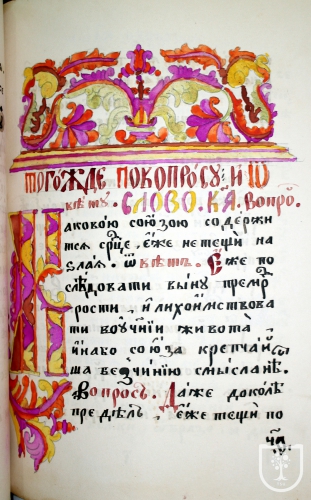 тогожде повопросу: и ѿ
вѣту. слово. к҃а. вопро.
Каковою союзою содержи
тся ср҃це, еже нетещи на
ѕлая. ѿвѣтъ. Еже по
слѣдовати выну прему
рости, и лихоимствова
ти воучнїи живота
и и або союза крепчай
ша вечинїю смысланѣ.
Вопросъ. Даже доколѣ
предѣлъ, еже тещи по